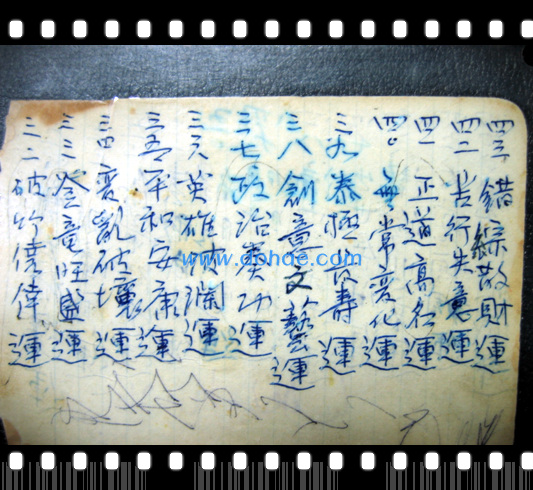 三二破竹僥倖運
三三登竜旺盛運
三四変亂破壞運
三五平和安康運
三六英雄波瀾運
三七政治奏功運
三八創意文藝運
三九泰極寿運
四〇無常変化運
四一正道高名運
四二苦行失意運
四三錯綜散財運
www.dohde.com